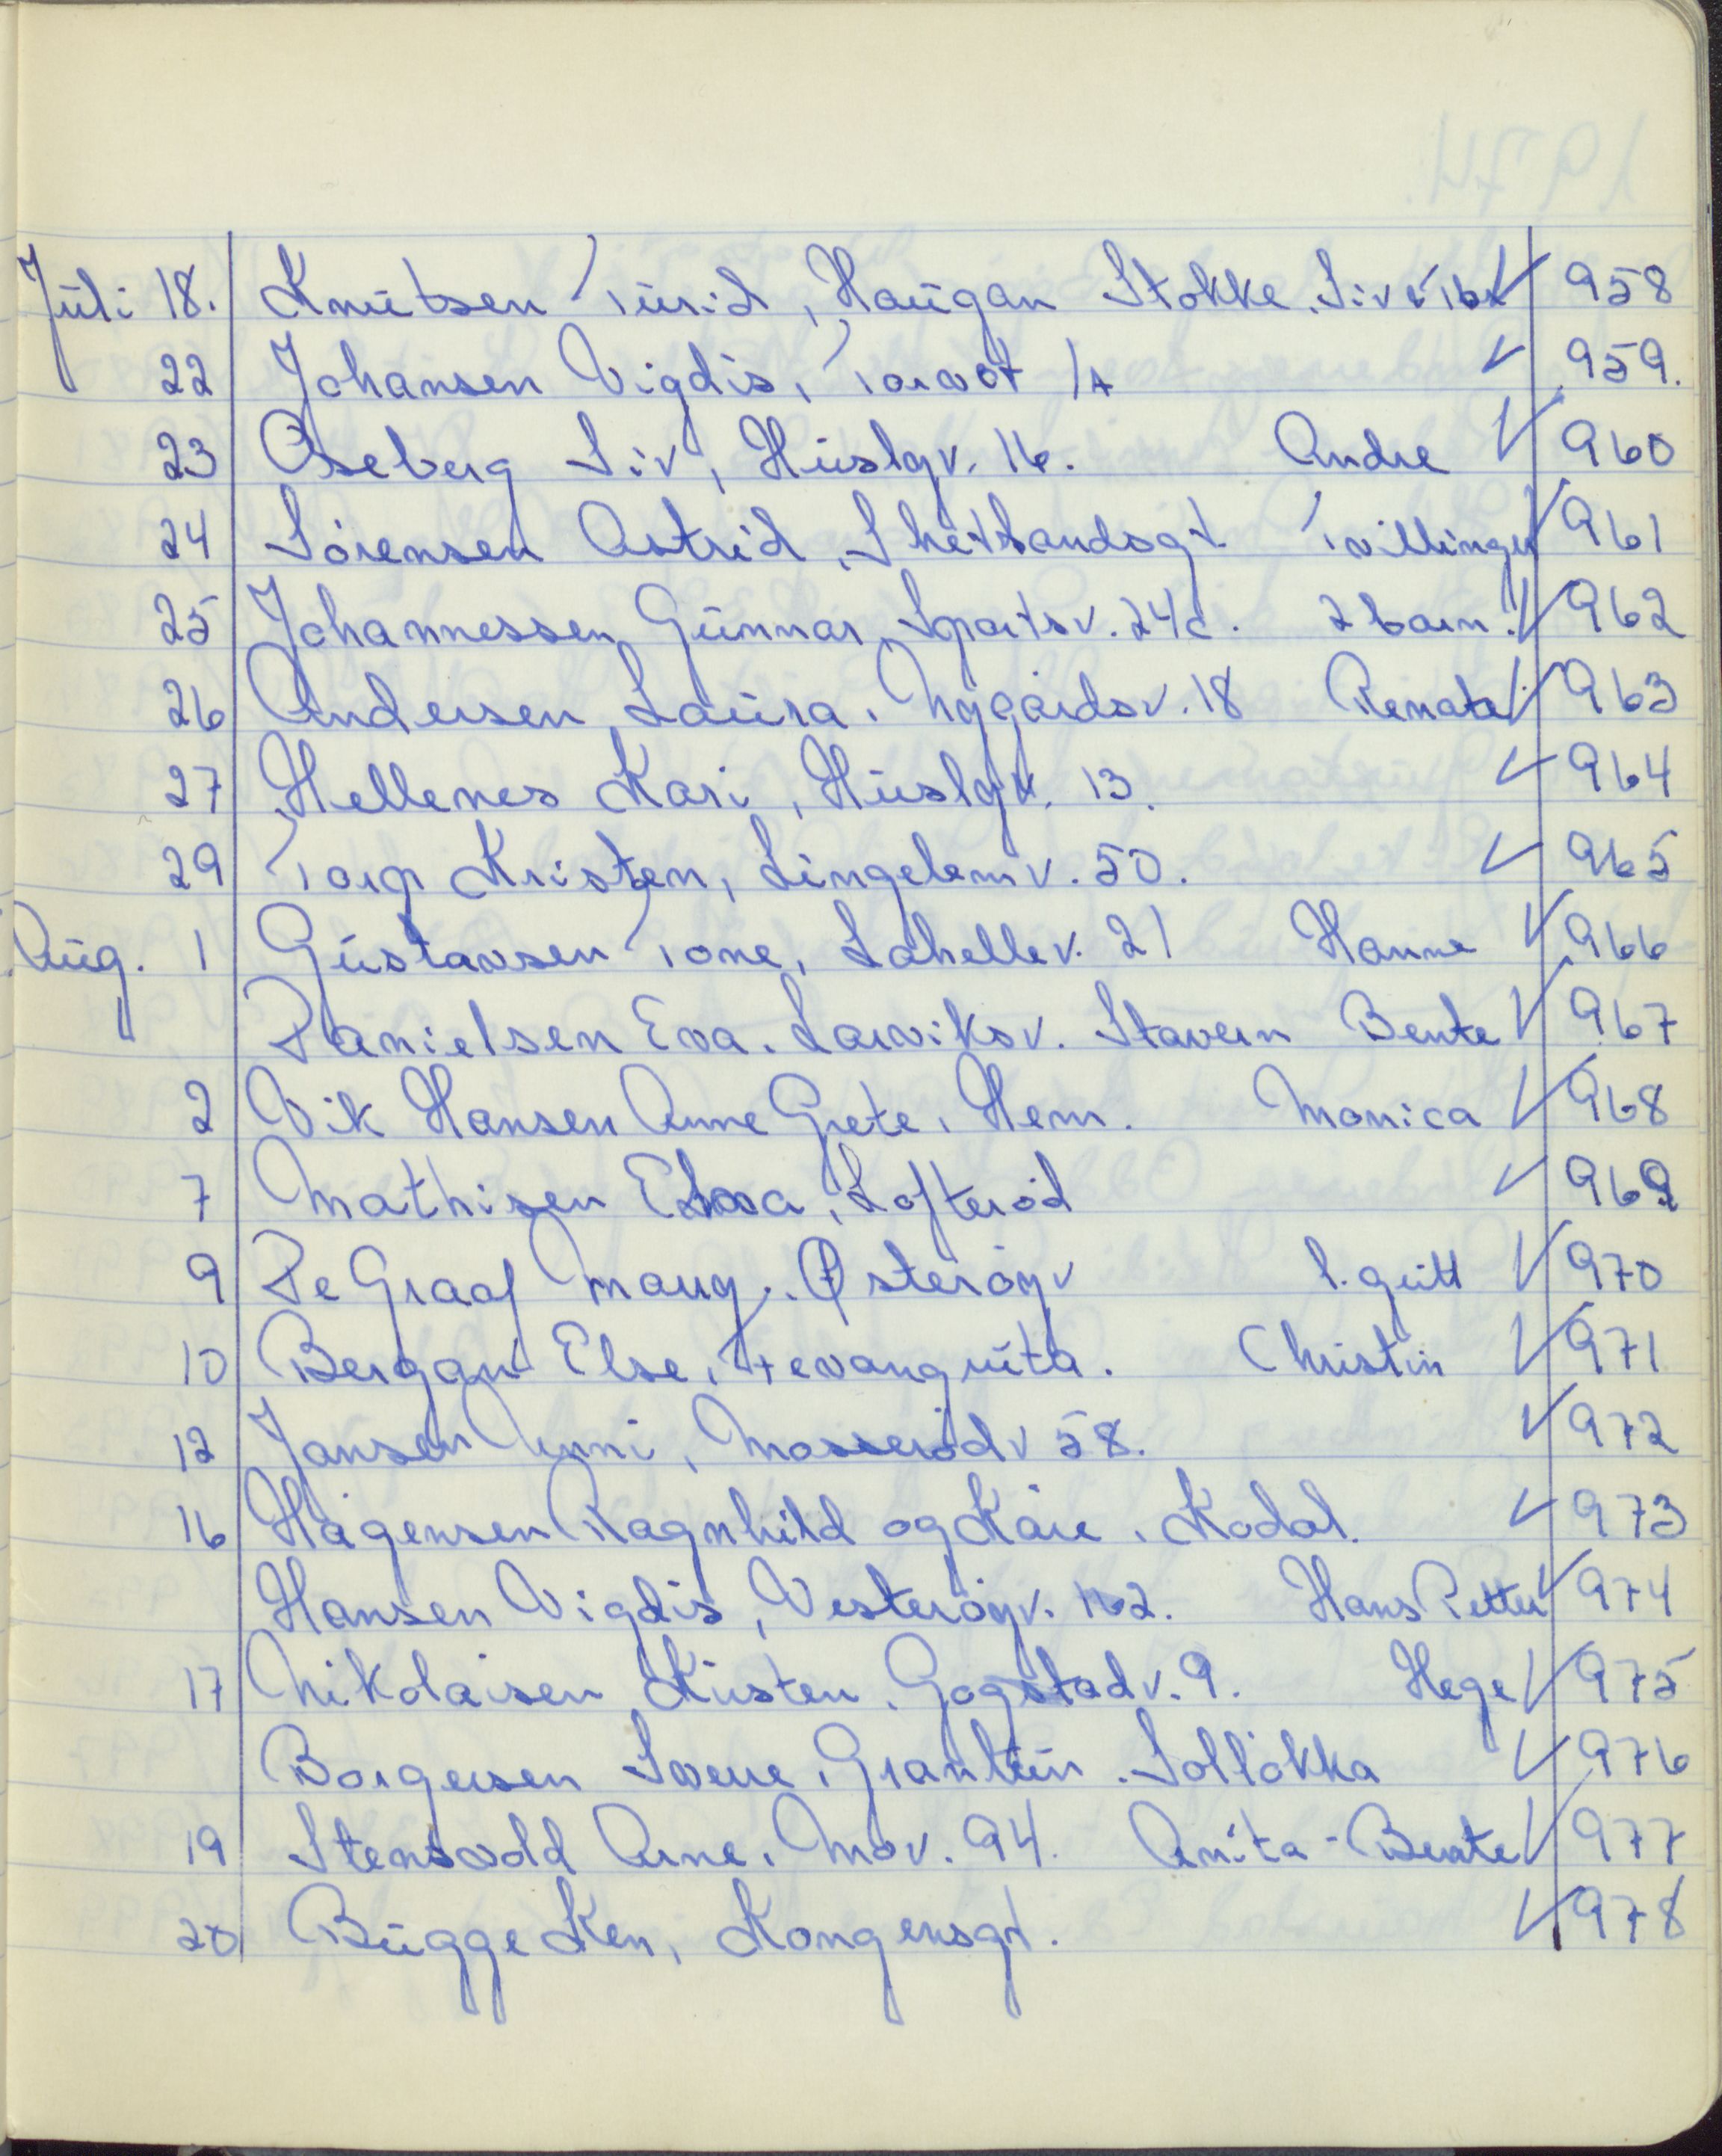 Juli 18. Knutsen Turid, Haugan Stokke. Siv 958
22 Johansen Vigdis, Torvet 1A 959.
23 Oseberg Liv, Huslyv. 16. Andre 960
24 Sørensen Astrid, Shetlandsgt. Tvillinger 961
25 Johannessen Gunnar, Sportsv. 24c. 2 barn. 962
26 Andersen Laura. Nygårdsv. 18 Renate 963
27 Hellenes Kari, Huslyv. 13. 964
29 Torp Kristen, Lingelemv. 50. 965
Aug. 1 Gustavsen Tone, Lahellev. 21 Hanne 966
Danielsen Eva. Larviksv. Stavern Bente 967
2 Vik Hansen Anne Grete, Hem. Monica 968
7 Mathisen, Lofterød 969
9 De Graaf Marg. Østerøyv 970
10 Bergan Else, Fevangruta. Christin 971
12 Jansen Unni, Mosserødv 58. 972
16 Hagensen Ragnhild og Kåre, Kodal. 973
Hansen Vigdis, Vesterøyv. 162. Hans Petter 974
17 Nikolaisen Kirsten, Gogstadv. 9. Hege 975
Borgersen Sverre, Grantun. Solløkka 976
19 Stensvold Arne, Mov. 94. Anita-Beate 977
20 Bugge Ken, Kongensgt. 978